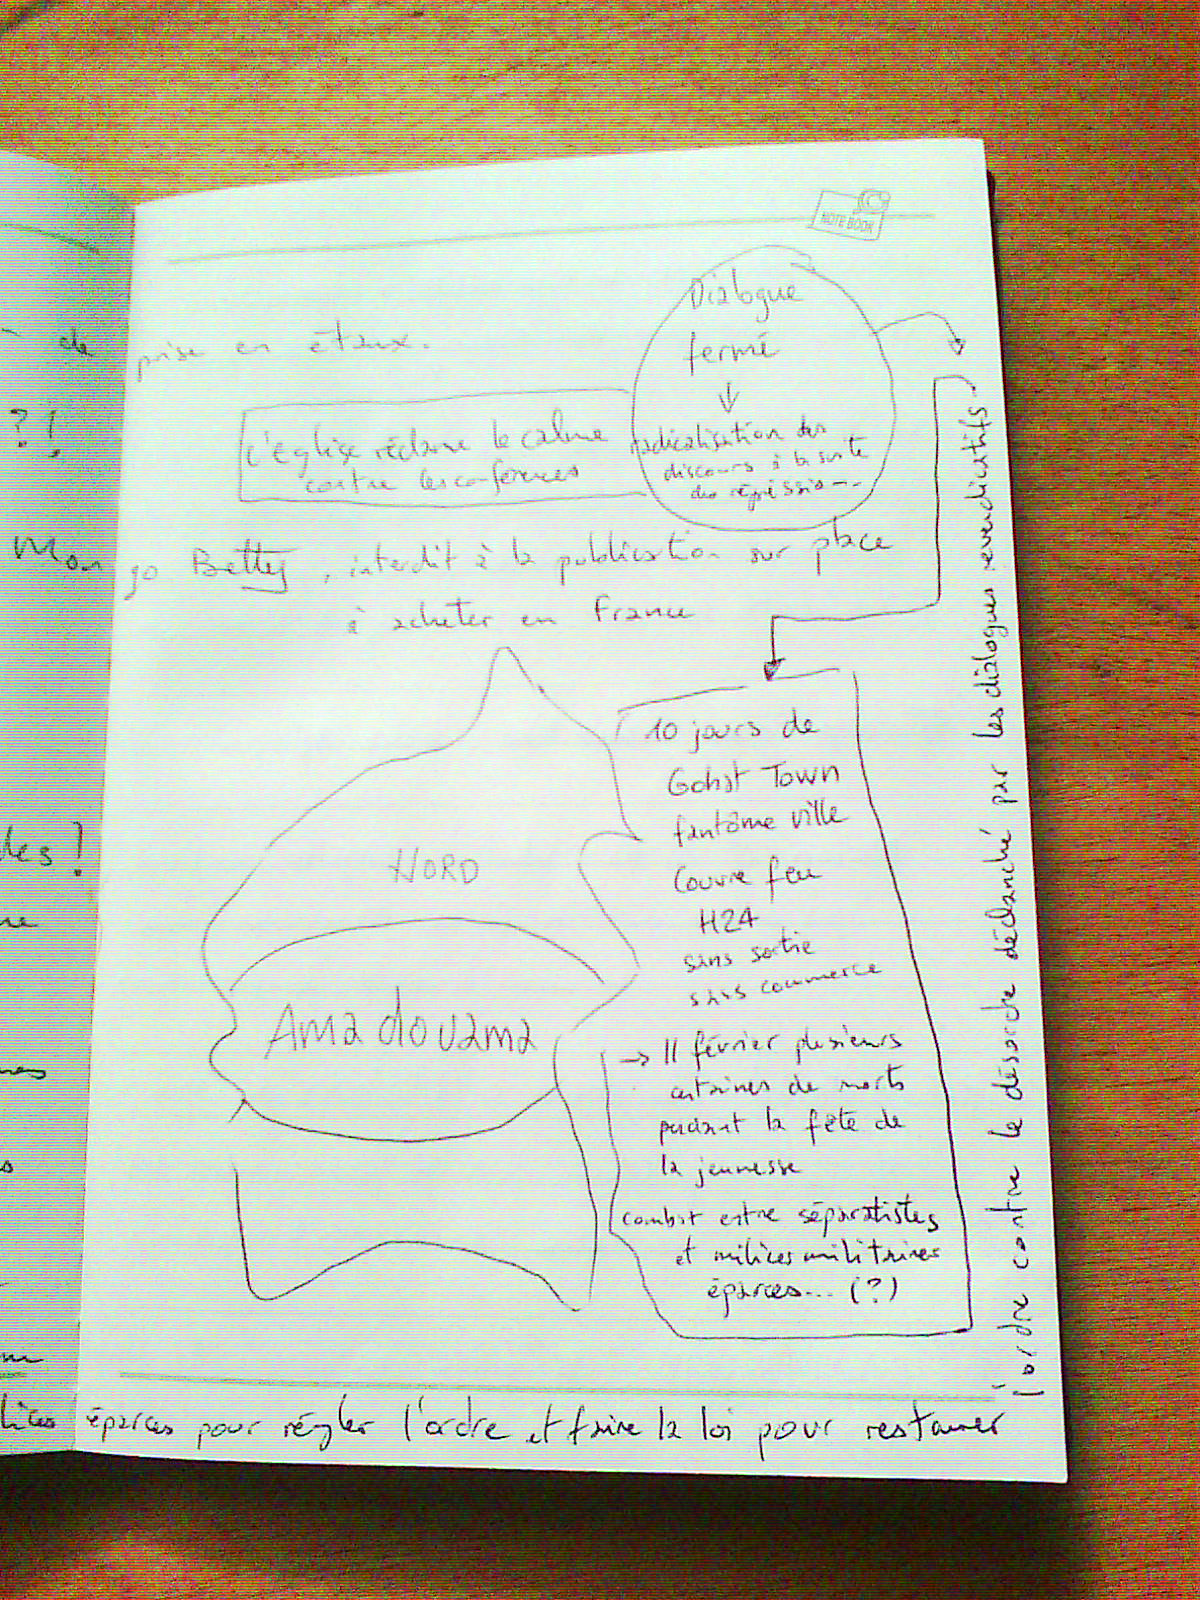 NOTE BOOK
de prise en étaux.
Dialogue
fermé
↓
radicalisation des
discours à la suite
des régression...
l'église réclame le calme
contre les conférences
?!
Mongo Betty, interdit à la publication sur place
à acheter en France
10 jours de
Gohst Town
fantôme ville
Couvre feu
H24
sans sortie
sans commerce
NORD
Amadouama
→ 11 février plusieurs
centaines de morts
pendant la fête de
la jeunesse
combat entre séparatistes
et milices militaires
éparses... (?)
des!
lices éparces pour régler l'ordre et faire la loi pour restaurer
l'ordre contre le désordre déclanché par les dialogues revendicatifs.